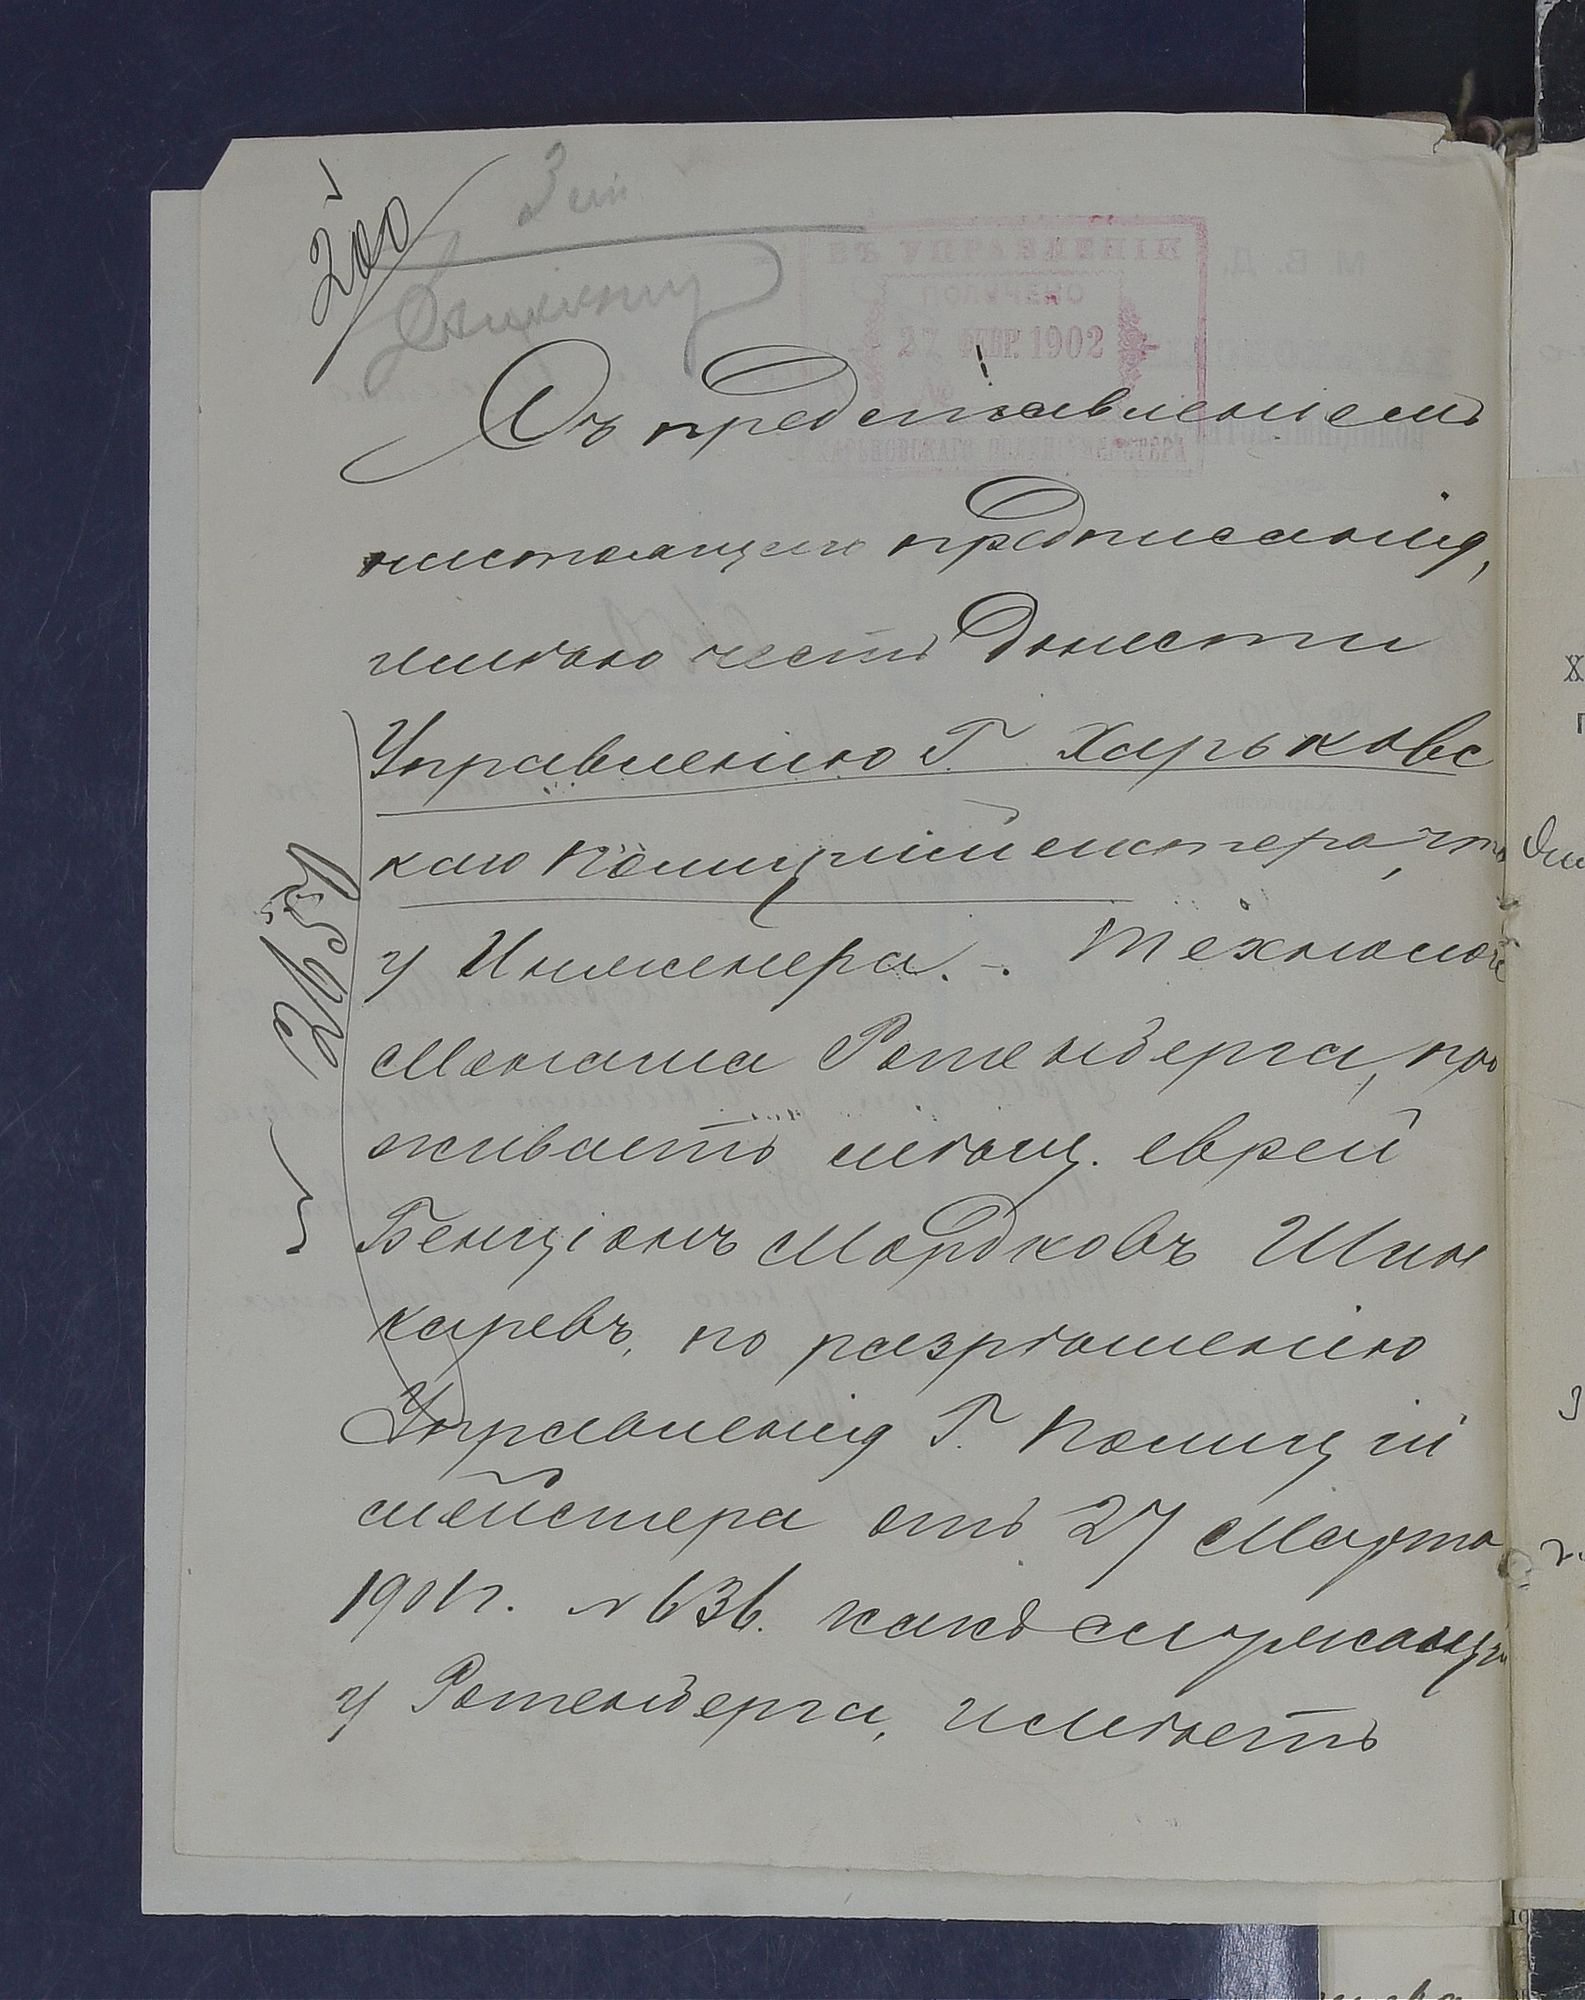 200
3 ст
ВЪ УПРАВЛЕНІЕ
ПОЛУЧЕНО
27 ФЕВР. 1902
ХАРЬКОВСКАГО ПОЛИЦІЙМЕЙСТЕРА
Съ представленіемъ
настоящаго предписанія,
имѣю честь донести
Управленію Г. Харьковс
каго Полиціймейстера, что
у Инженера-Технолога
Монаша Ротенберга, про
живаетъ мѣщ. еврей
Бенціонъ Мордковъ Шин
каревъ, по разрѣшенію
Управленія Г. Полицій
мейстера отъ 27 Марта
1901 г. № 636. какъ служащій
у Ротенберга, имѣетъ
2650